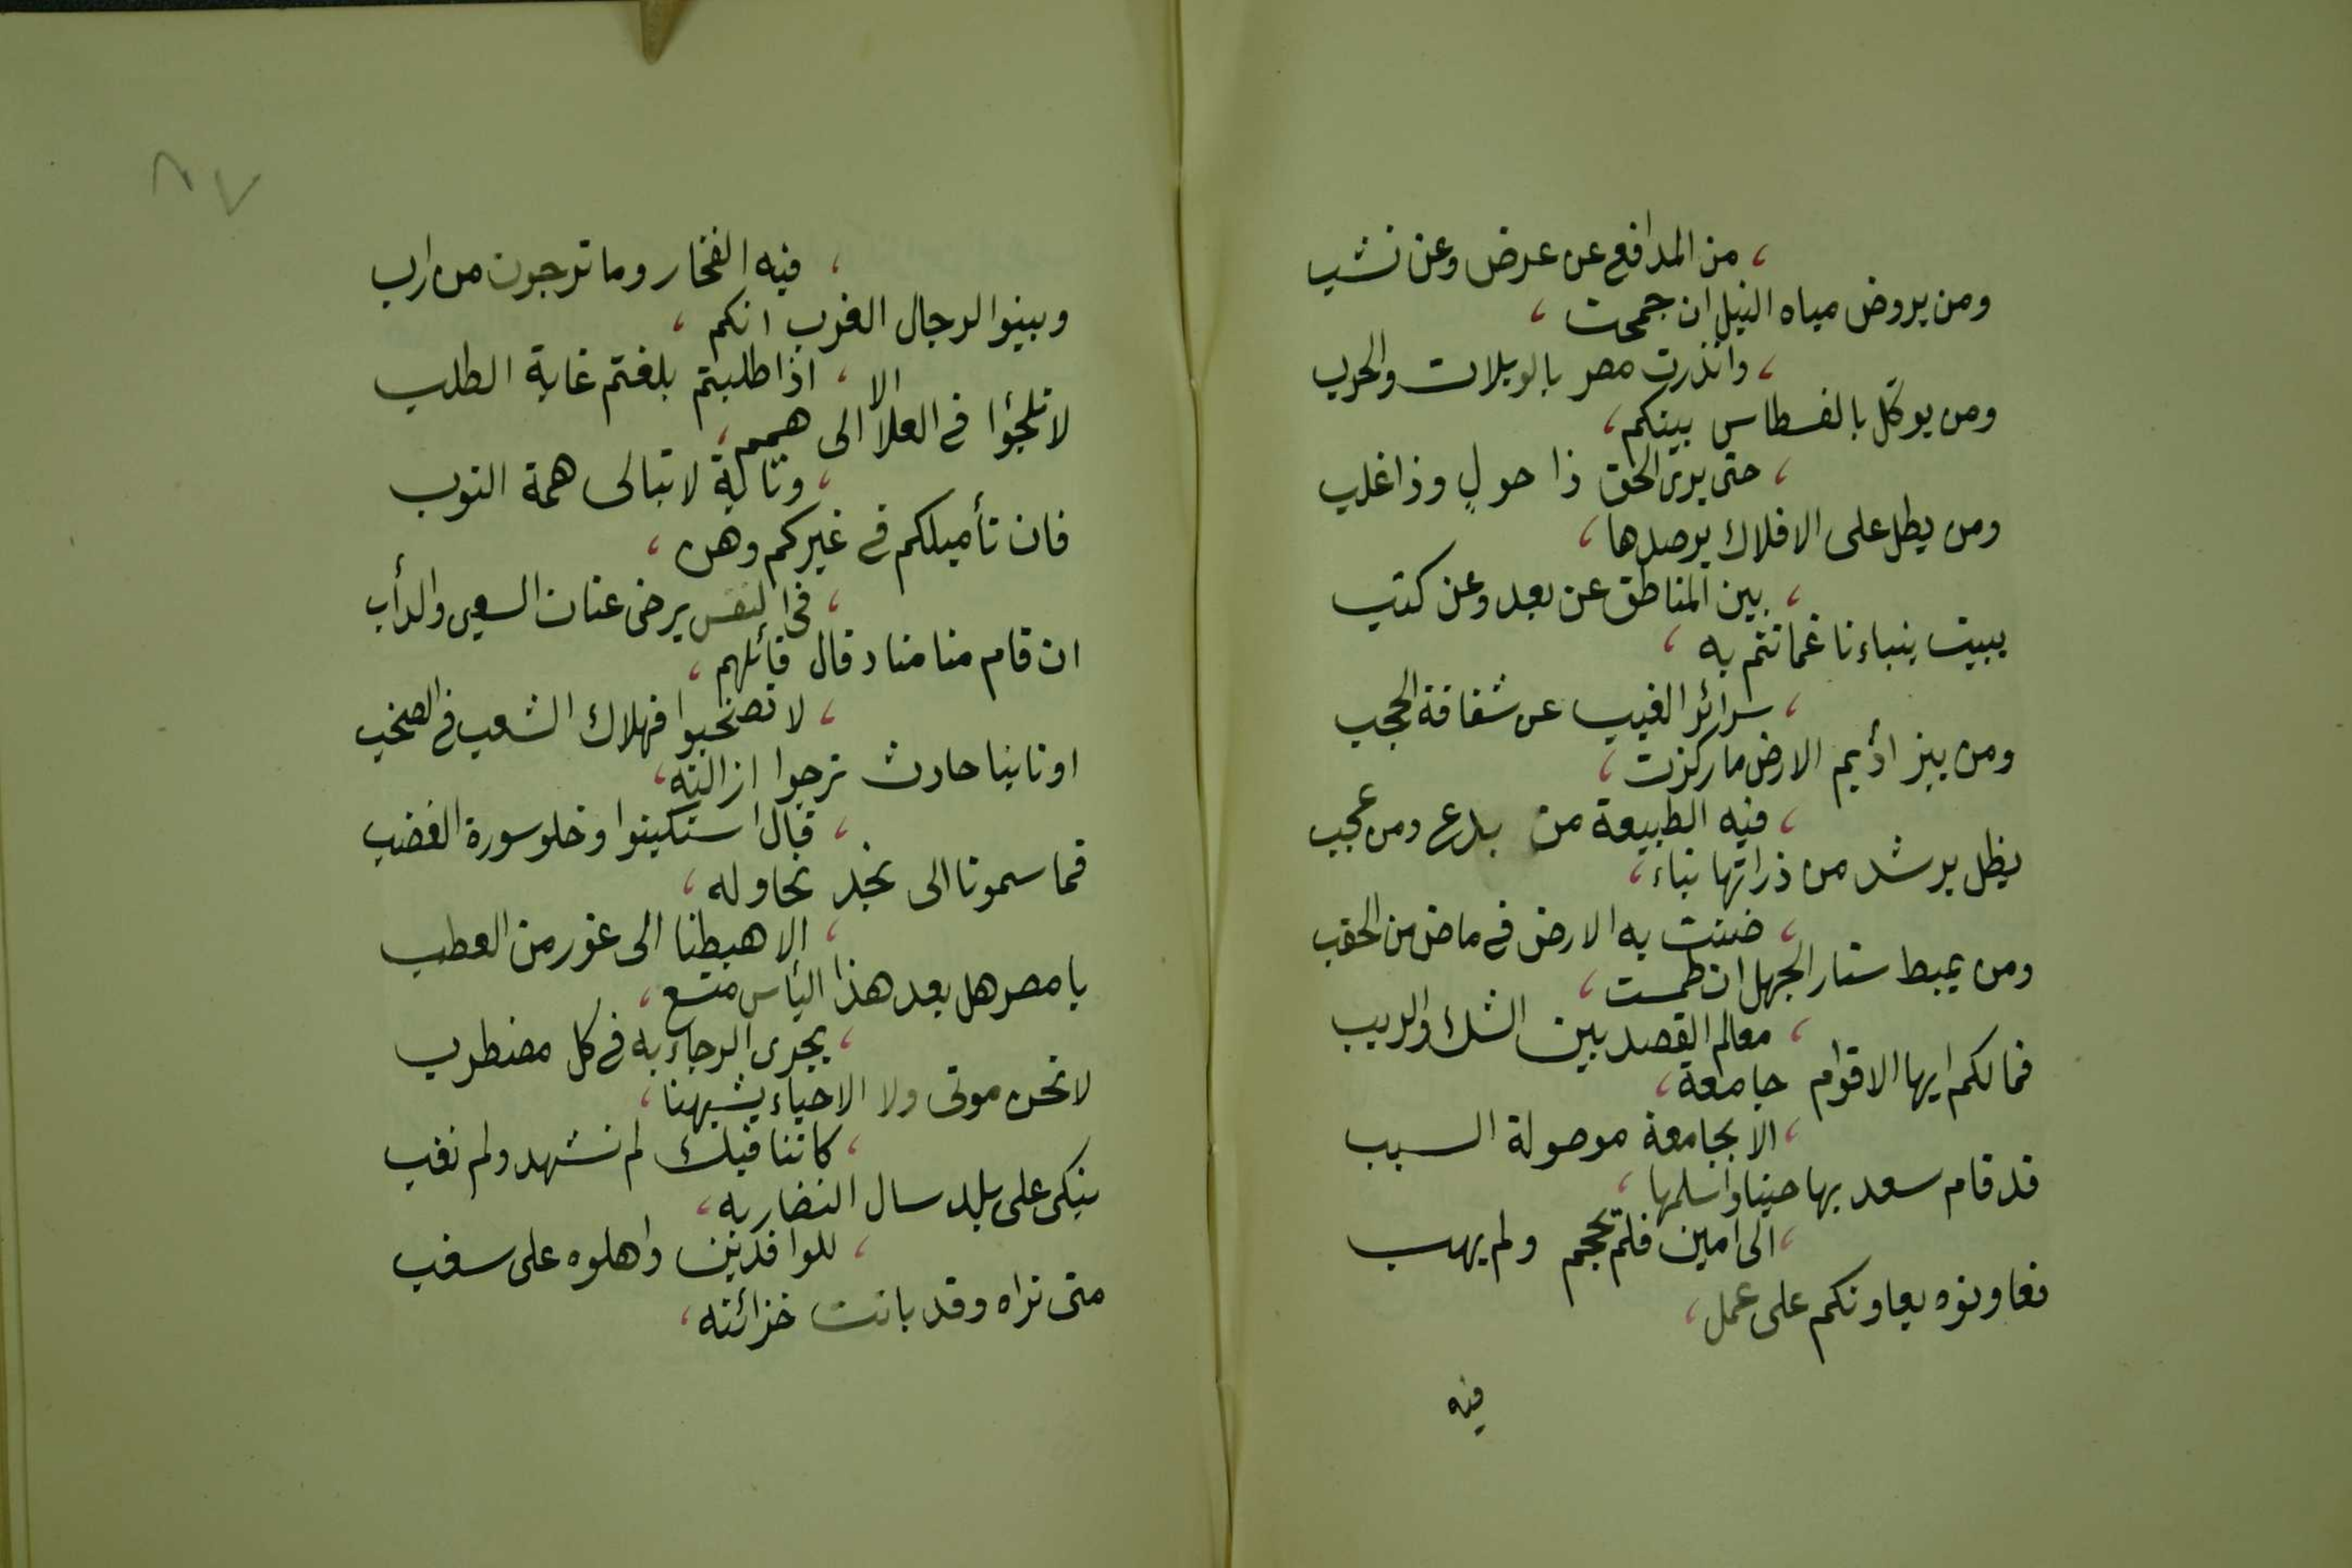 من المدافع عن عرض وعن نشب
ومن يروض مياه النيل ان جمحت ،
وانذرت مصر بالويلات والحرب
ومن يوكّل بالقسطاس بينكم ،
حتى يرى الحق ذا حولٍ وذا غلب
ومن يطل على الافلاك يرصدها ،
بين المناطق عن بعد وعن كثب
يبيت ينباءنا عما تنم به ،
سرائر الغيب عن شفافة الحجب
ومن يبز اديم الارض ما ركزت ،
فيه الطبيعة من بدع ومن عجب
يظل يرشد من ذراتها نباء ،
ضنت به الارض في ماض من الحقب
ومن يميط ستار الجهل ان طمست ،
معالم القصد بين الشك والريب
فما لكم ايها الاقوام جامعة ،
الا بجامعة موصولة السبب
قد قام سعد بها حينا واسلمها ،
الى امين فلم تحجم ولم يهب
فعاونوه يعاونكم على عمل ،
فيه
٨٧
فيه الفخار وما ترجون من ارب
وبينوا لرجال الغرب انكم ،
اذا طلبتم بلغتم غاية الطلب
لا تلجؤا في العلا الا الى همم ،
وثابة لا تبالى همة النوب
فان تأميلكم في غيركم وهن ،
في النفس يرخى عنان السعى والدأب
ان قام منا مناد قال قائلهم ،
لا تصخبوا فهلاك الشعب في الصخب
او نابنا حادث نرجوا ازالته ،
قال استكينوا وخلو سورة الغضب
فما سمونا الى نجد نحاوله ،
الا هبطنا الى غور من العطب
يا مصر هل بعد هذا اليأس متسع ،
يجرى الرجاء به في كل مضطرب
لا نحن موتى ولا الاحياء يشبهنا ،
كاننا فيك لم نشهد ولم نغب
نبكى على بلد سال النضار به ،
للوافدين واهلوه على سغب
متى نراه وقد باتت خزائنه ،